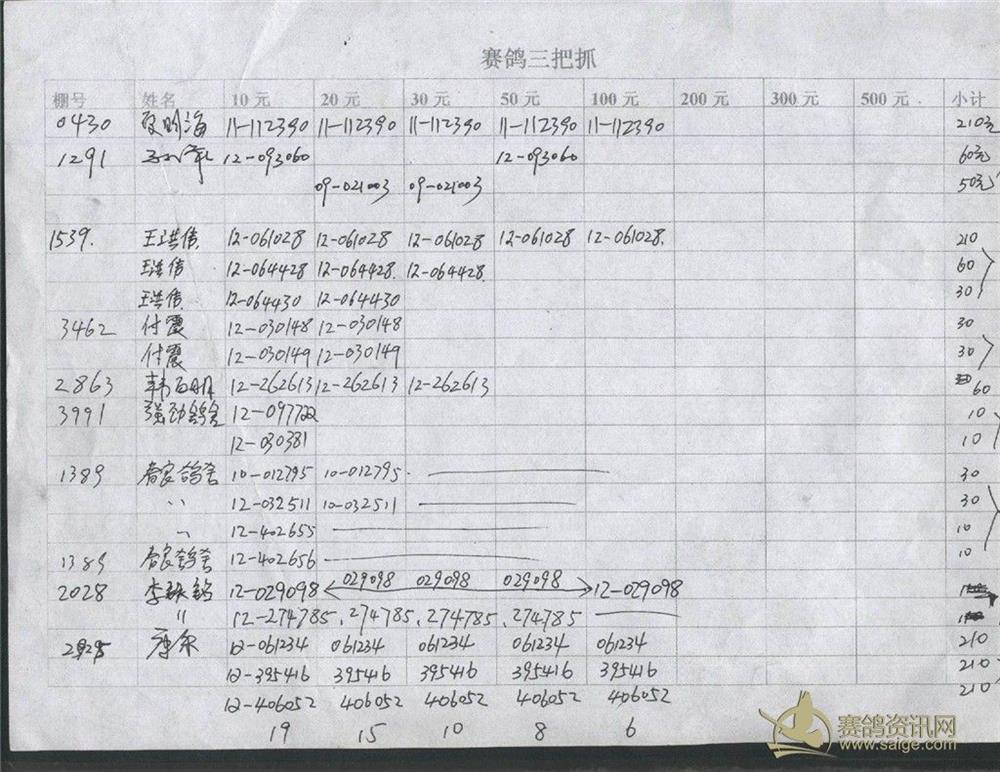 赛鸽三把抓
棚号 姓名 10元 20元 30元 50元 100元 200元 300元 500元. 小计
0430 夏明海 11-112390 11-112390 11-112390 11-112390 11-112390 210元
1291 12-093060 12-093060 60元
09-021003 09-021003 50元
1539. 王洪倩 12-061028 12-061028 12-061028 12-061028 12-061028. 210
王洪倩 12-064428 12-064428. 12-064428. 60
王洪倩 12-064430 12-064430 30
3462 付震 12-030148 12-030148 30
付震 12-030149 12-030149 30
2863 韩百明 12-262613 12-262613 12-262613 60
3991 强劲鸽舍 12-097722 10
12-030381 10
1389 鸽舍 10-012795 10-012795. 30
〃 12-032511 10-032511 30
〃 12-402655 10
1389 鸽舍 12-402656 10
2028 李铁铭 12-029098 029098 029098 029098 12-029098
〃 12-274785. 274785. 274785. 274785
唐余 12-061234 061234 061234 061234 061234 210
12-395416 395416 395416 395416 395416 210
12-406052 406052 406052 406052 406052 210
19 15 10 8 6
赛鸽资讯网
www.saige.com